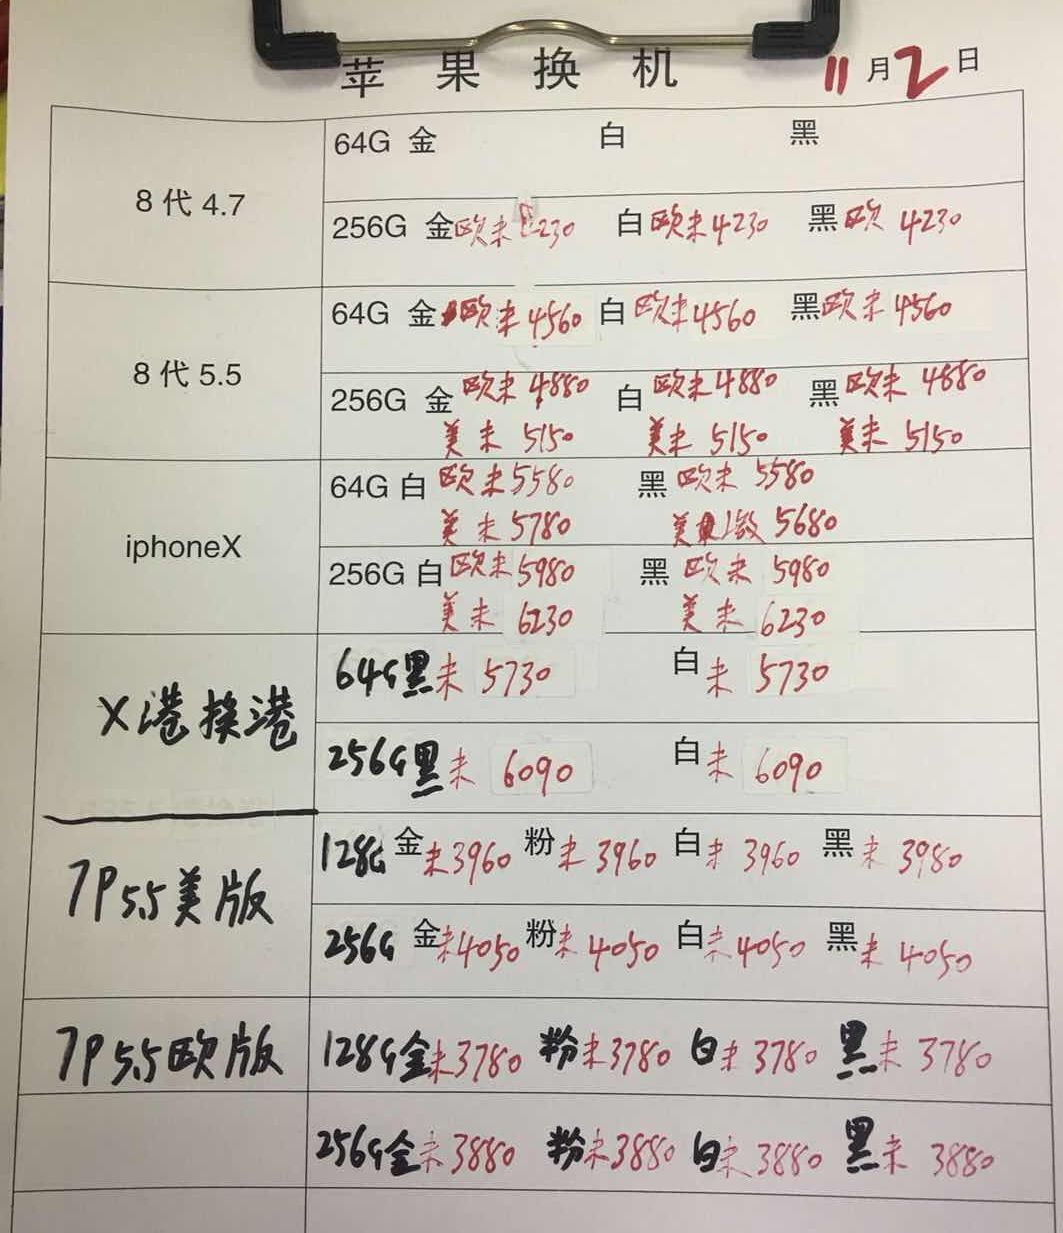 苹果换机 11月2日
64G 金 白 黑
8代 4.7
256G 金欧未 230 白欧未4230 黑欧 4230
64G 金欧未4560 白欧未4560 黑欧未4560
8代 5.5
256G 金欧未4880 白欧未4880 黑欧未4880
美未 5150 美未 5150 美未 5150
64G 白 欧未5580 黑 欧未 5580
美未5780 美 激 5680
iphoneX
256G 白 欧未5980 黑 欧未 5980
美未 6230 美未 6230
64G黑未 5730 白未 5730
X港换港
256G黑未 6090 白未 6090
128G 金未3960 粉未3960 白未 3960 黑未 3980
7P5.5美版
256G 金未4050 粉未4050 白未4050 黑未 4050
7P5.5欧版 128G金未3780 粉未3780 白未3780 黑未 3780
256G金未3880 粉未3880 白未3880 黑未 3880